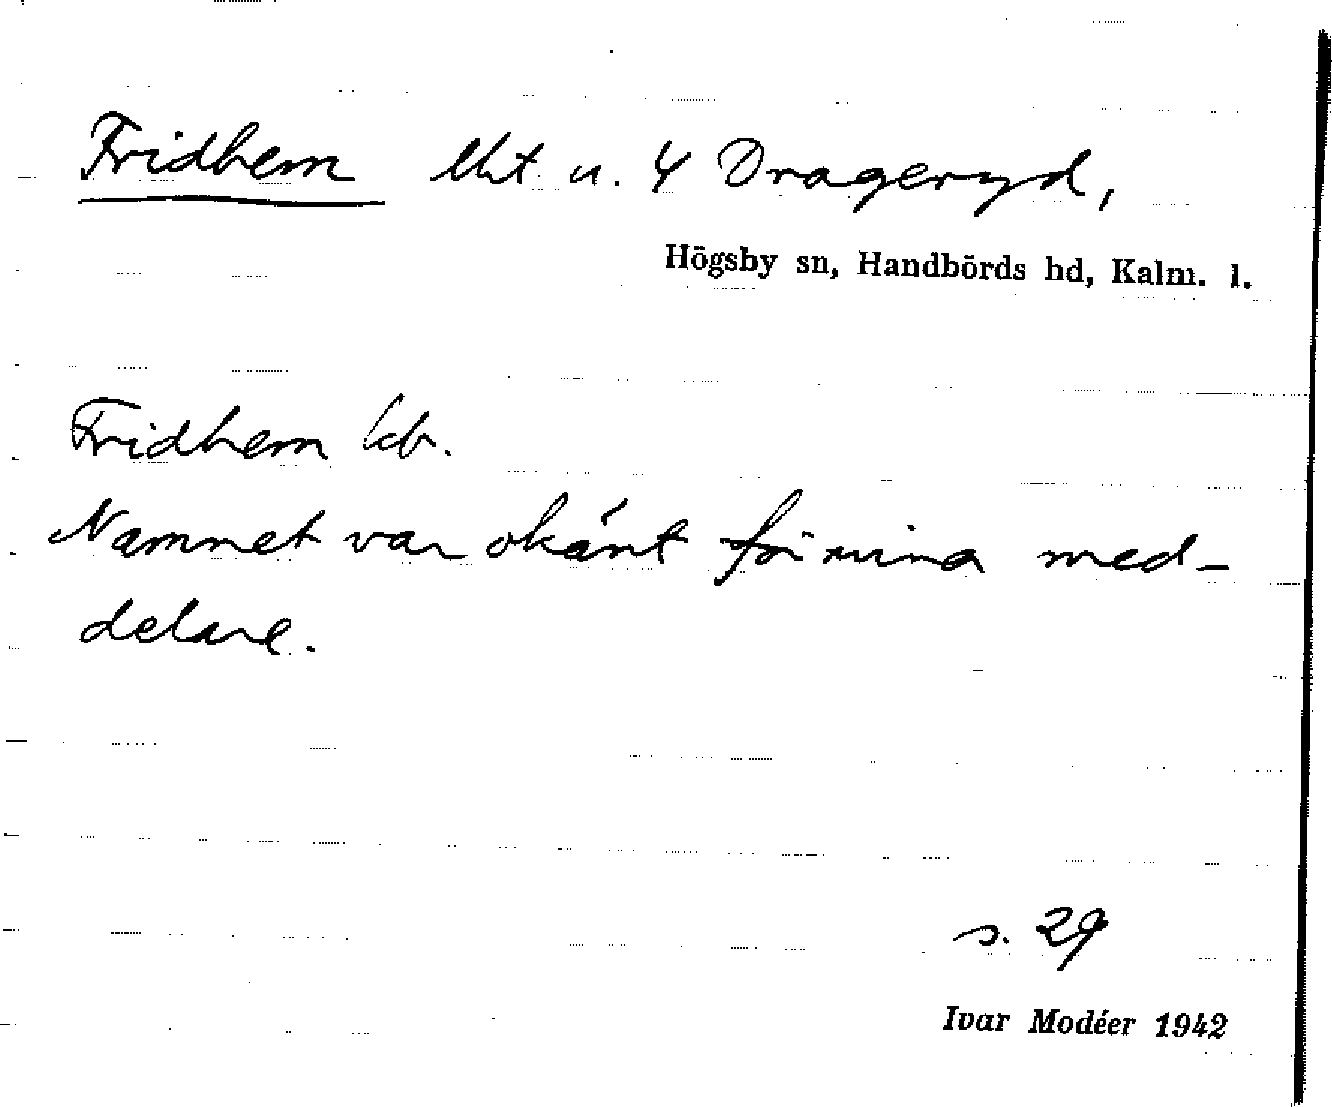 Fridhem lht u. 4 Drageryd,
Högsby sn, Handbörds hd, Kalm. l.
Fridhem kb.
Namnet var okänt för mina med-
delare.
s. 29
Ivar Modéer 1942